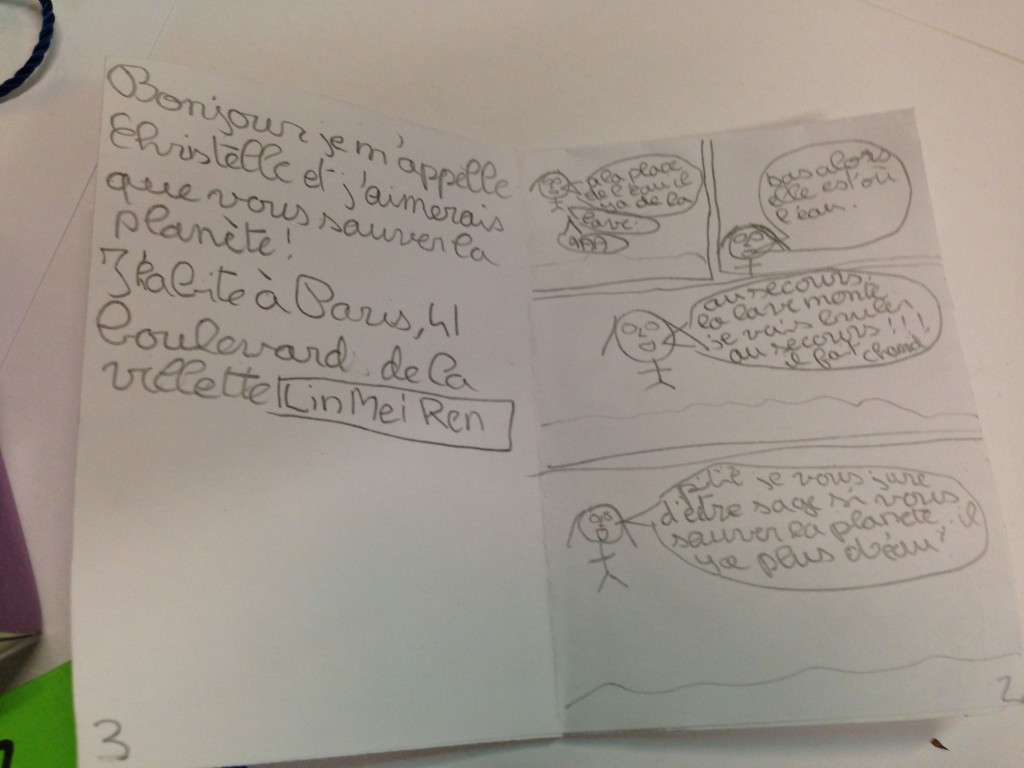 Bonjour je m'appelle
Christelle et j'aimerais
que vous sauver la
planète!
J'habite à Paris, 41
boulevard de la
villette
Lin Mei Ren
3
à la place
de l'eau il
ya de la
lave.
alors
elle est où
l'eau.
au secours
la lave monte
je vais bruler
au secours!!!
il fait chaud
je vous jure
d'être sage si vous
sauver la planète, il
ya plus d'eau!
2